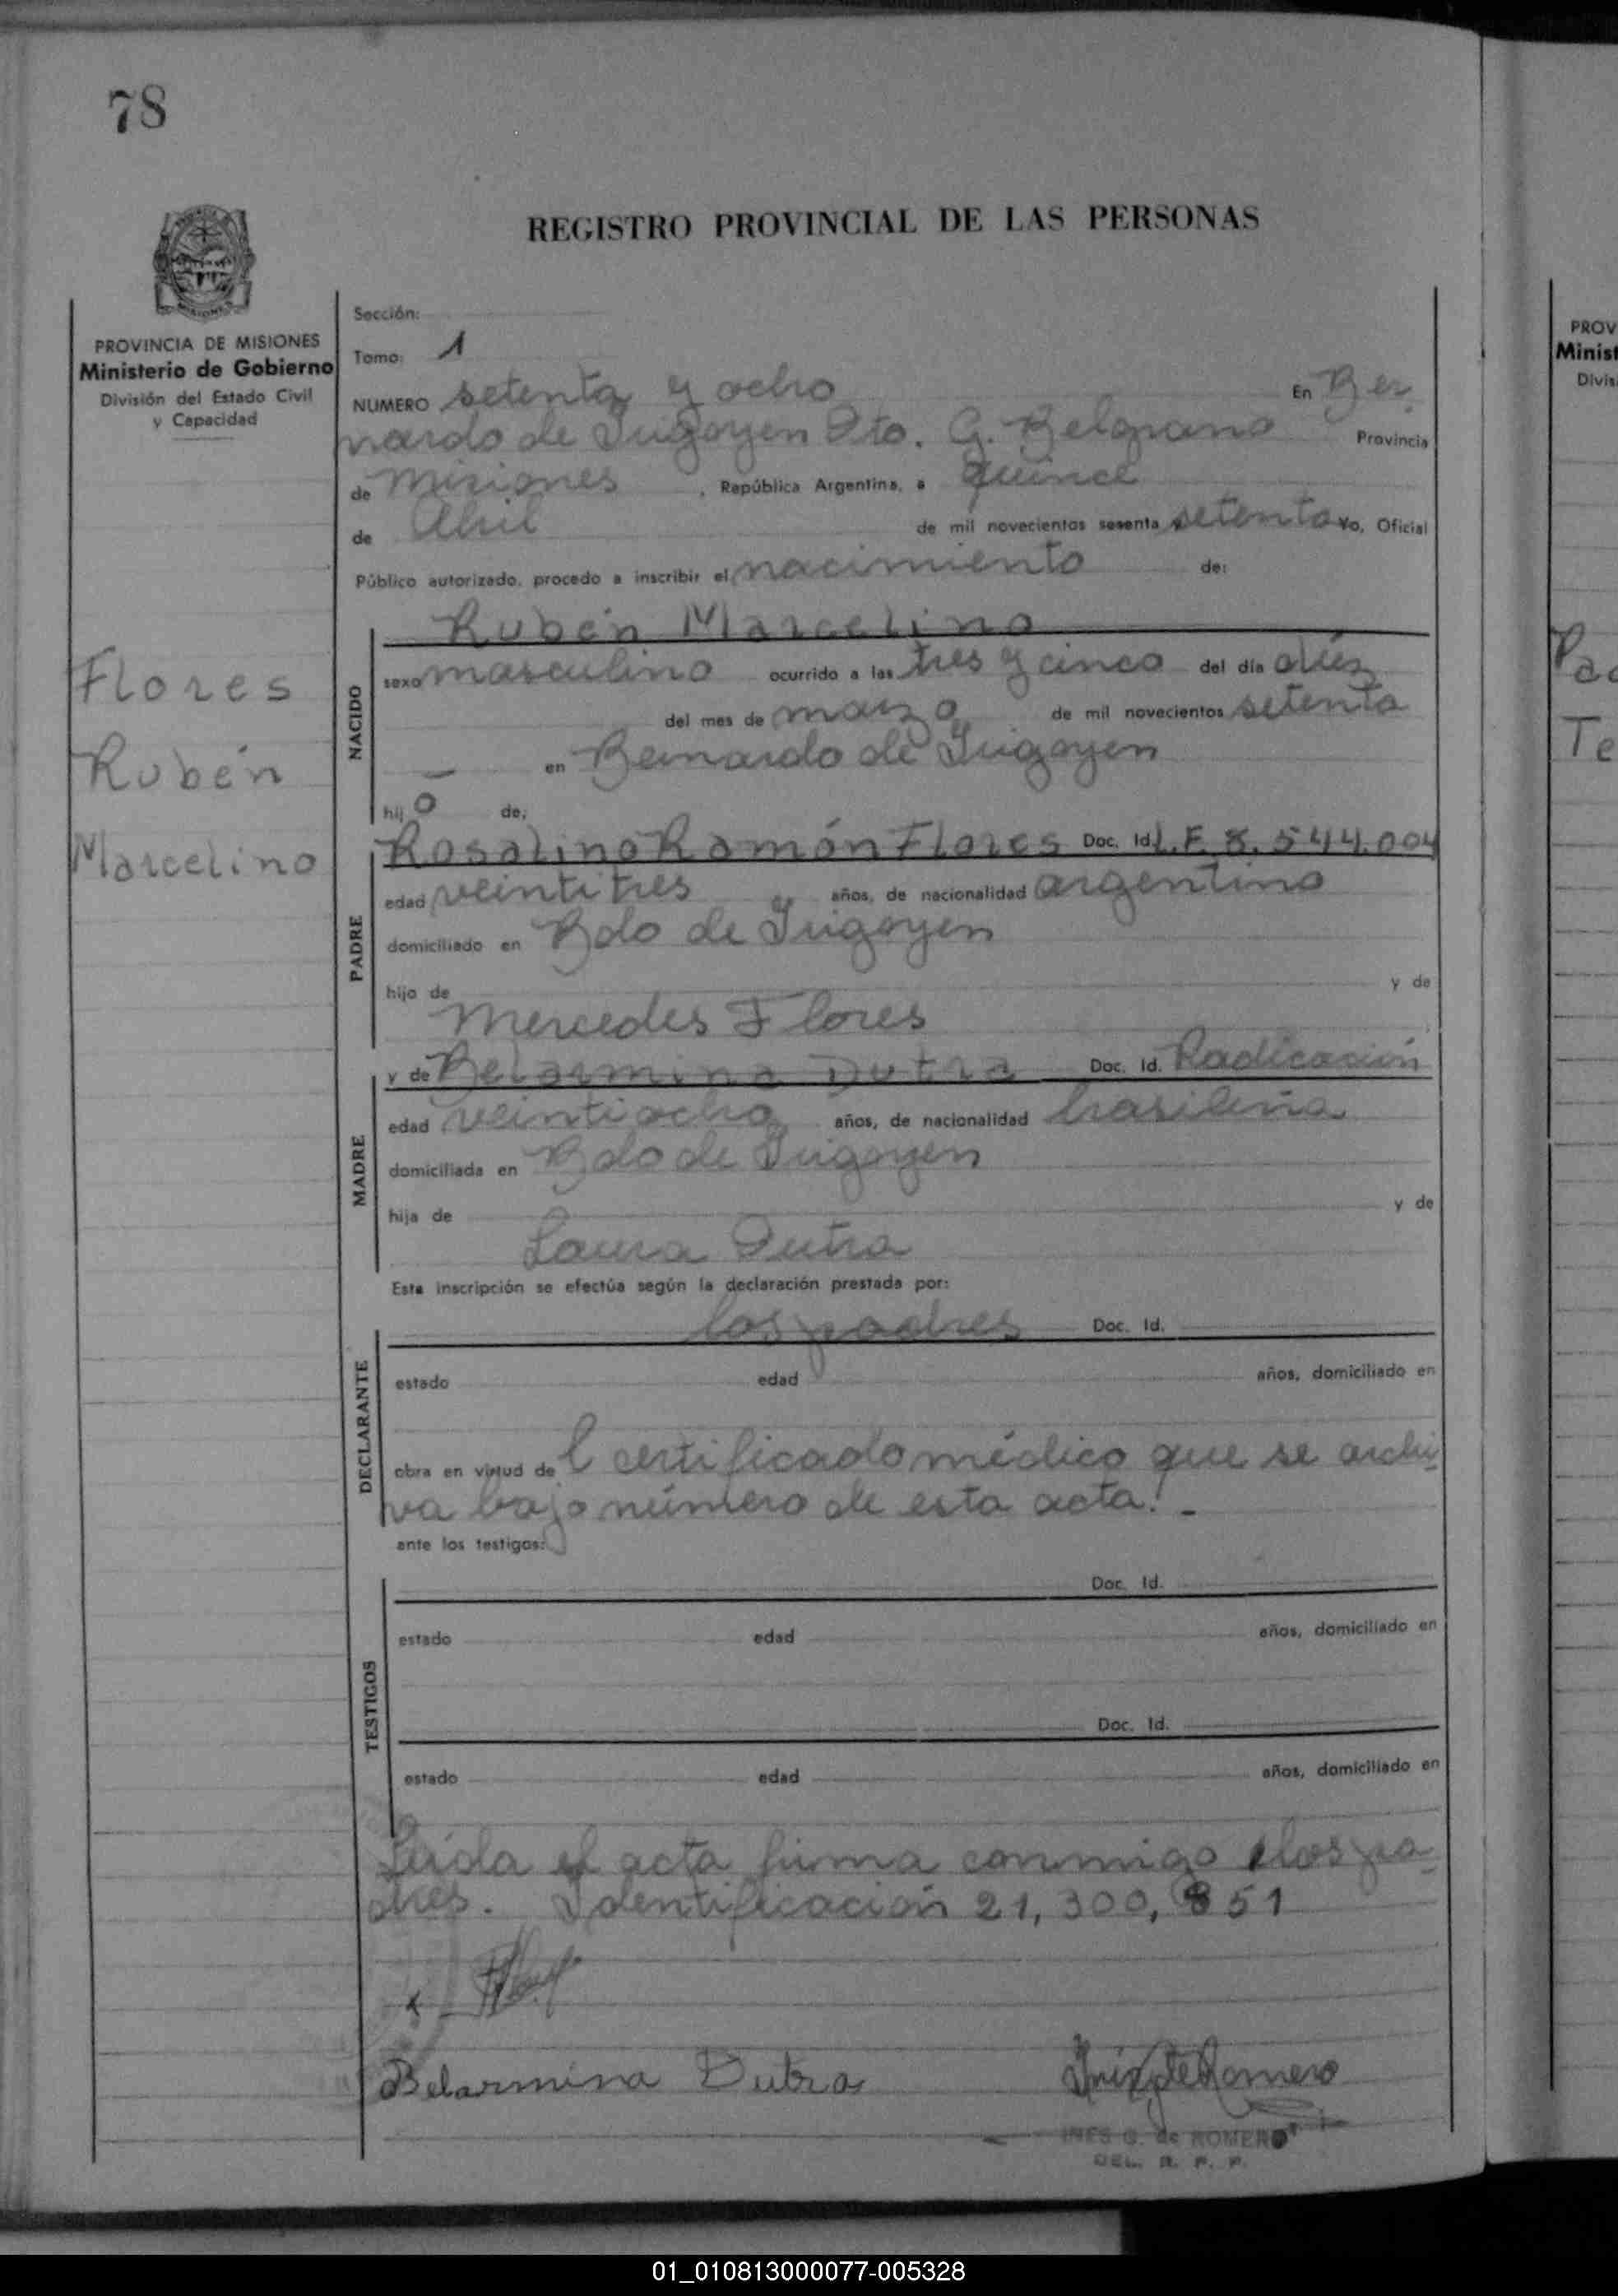 78
REGISTRO PROVINCIAL DE LAS PERSONAS
PROVINCIA DE MISIONES
Ministerio de Gobierno
División del Estado Civil
y Capacidad
Flores
Rubén
Marcelino
Sección:
Tomo: 1
NUMERO setenta y ocho En Ber
nardo de Irigoyen Dto. G. Belgrano Provincia
de Misiones , República Argentina, a quince
de Abril de mil novecientos sesenta setenta Yo, Oficial
Público autorizado, procedo a inscribir el nacimiento de:
Rubén Marcelino
NACIDO
sexo masculino ocurrido a las tres y cinco del día diez
del mes de marzo de mil novecientos setenta
— en Bernardo de Irigoyen
hijo de:
Rosalino Ramón Flores Doc. Id. L.E. 8.544.004
PADRE
edad veintitres años, de nacionalidad argentino
domiciliado en Bdo de Irigoyen
hijo de y de
Mercedes Flores
y de Belarmina Dutra Doc. Id. Radicación
MADRE
edad veintiocho años, de nacionalidad brasileña
domiciliada en Bdo de Irigoyen
hija de y de
Laura Dutra
Esta inscripción se efectúa según la declaración prestada por:
los padres Doc. Id.
DECLARANTE
estado edad años, domiciliado en
obra en virtud de l certificado médico que se archi
va bajo número de esta acta. -
ante los testigos:
Doc. Id.
TESTIGOS
estado edad años, domiciliado en
Doc. Id.
estado edad años, domiciliado en
Leída el acta firma conmigo los pa-
dres. Identificación 21,300,851
Belarmina Dutra
INES G. de ROMERO
DEL. R. P. P.
PROV
Minist
Divis
Te
01_010813000077-005328